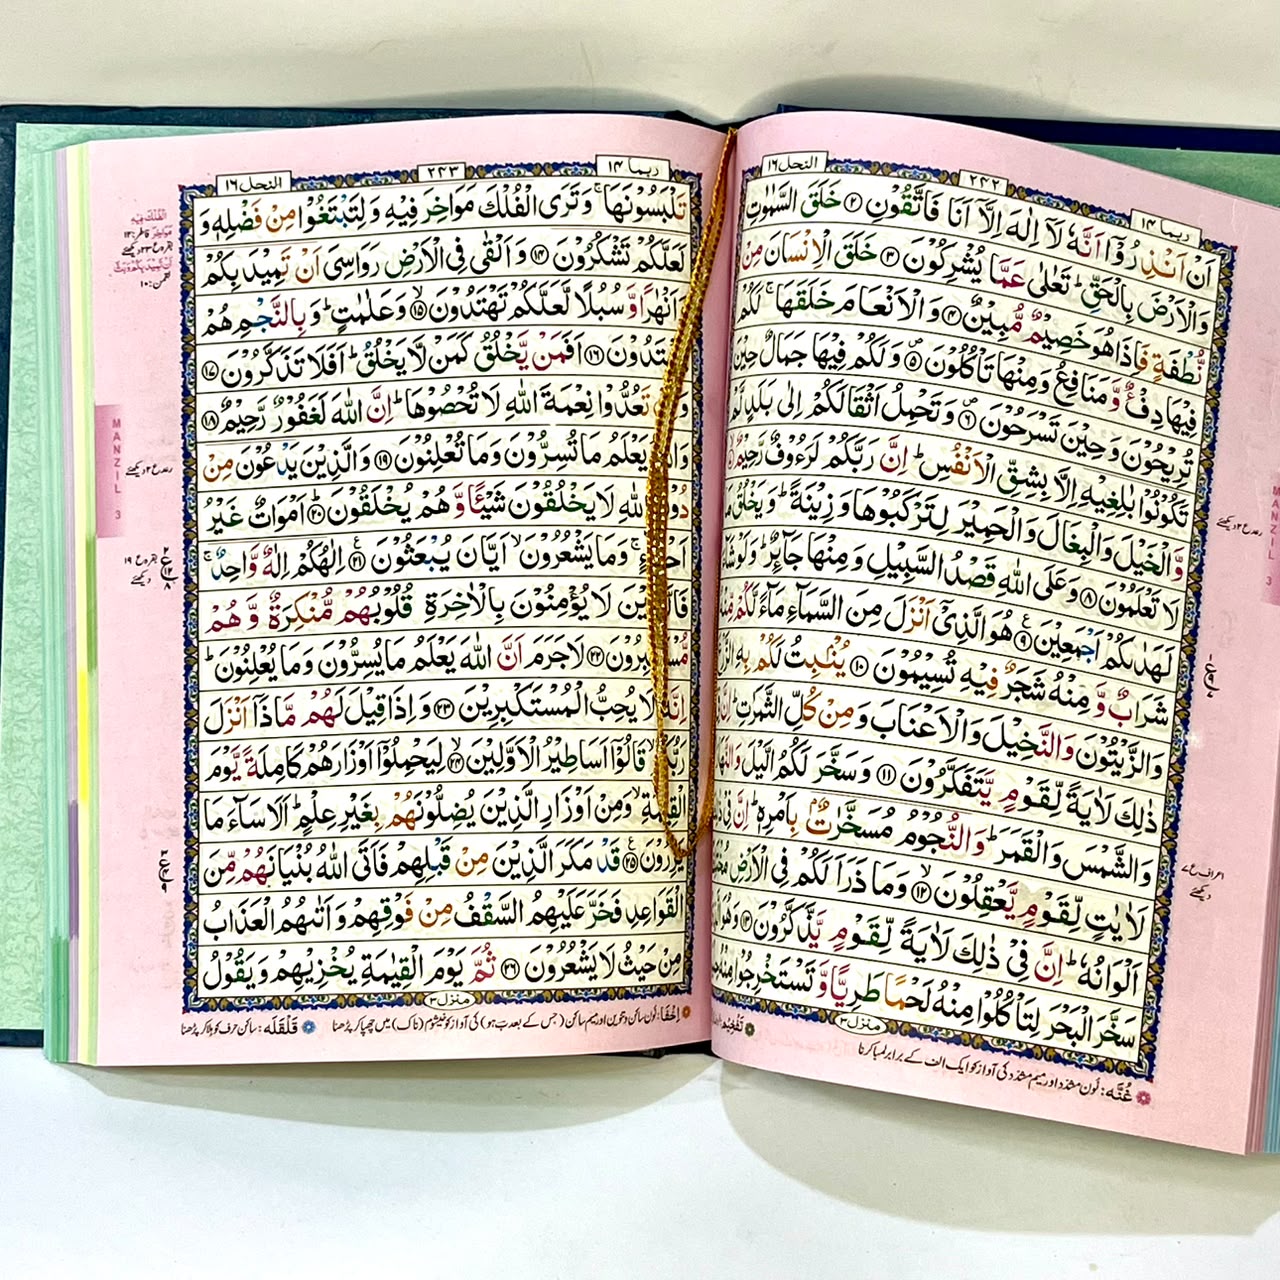 ربما ۱۴
۲۴۲
النحل ۱۶
اَنْ اَنْذِرُوْۤا اَنَّهٗ لَاۤ اِلٰهَ اِلَّاۤ اَنَا فَاتَّقُوْنِ ۝۲ خَلَقَ السَّمٰوٰتِ
وَالْاَرْضَ بِالْحَقِّ ؕ تَعٰلٰى عَمَّا يُشْرِكُوْنَ ۝۳ خَلَقَ الْاِنْسَانَ مِنْ
نُّطْفَةٍ فَاِذَا هُوَ خَصِيْمٌ مُّبِيْنٌ ۝۴ وَالْاَنْعَامَ خَلَقَهَا ۚ لَكُمْ
فِيْهَا دِفْءٌ وَّمَنَافِعُ وَمِنْهَا تَاْكُلُوْنَ ۝۵ وَلَكُمْ فِيْهَا جَمَالٌ حِيْنَ
تُرِيْحُوْنَ وَحِيْنَ تَسْرَحُوْنَ ۝۶ وَتَحْمِلُ اَثْقَالَكُمْ اِلٰى بَلَدٍ لَّمْ
تَكُوْنُوْا بٰلِغِيْهِ اِلَّا بِشِقِّ الْاَنْفُسِ ؕ اِنَّ رَبَّكُمْ لَرَءُوْفٌ رَّحِيْمٌ
وَّالْخَيْلَ وَالْبِغَالَ وَالْحَمِيْرَ لِتَرْكَبُوْهَا وَزِيْنَةً ؕ وَيَخْلُقُ
لَا تَعْلَمُوْنَ ۝۸ وَعَلَى اللّٰهِ قَصْدُ السَّبِيْلِ وَمِنْهَا جَآئِرٌ ؕ وَلَوْ شَآءَ
لَهَدٰىكُمْ اَجْمَعِيْنَ ۝۹ هُوَ الَّذِيْۤ اَنْزَلَ مِنَ السَّمَآءِ مَآءً لَّكُمْ مِّنْهُ
شَرَابٌ وَّمِنْهُ شَجَرٌ فِيْهِ تُسِيْمُوْنَ ۝۱۰ يُنْۢبِتُ لَكُمْ بِهِ
وَالزَّيْتُوْنَ وَالنَّخِيْلَ وَالْاَعْنَابَ وَمِنْ كُلِّ الثَّمَرٰتِ ؕ اِنَّ
ذٰلِكَ لَاٰيَةً لِّقَوْمٍ يَّتَفَكَّرُوْنَ ۝۱۱ وَسَخَّرَ لَكُمُ الَّيْلَ وَالنَّهَارَ
وَالشَّمْسَ وَالْقَمَرَ ؕ وَالنُّجُوْمُ مُسَخَّرٰتٌۢ بِاَمْرِهٖ ؕ اِنَّ فِيْ
لَاٰيٰتٍ لِّقَوْمٍ يَّعْقِلُوْنَ ۝۱۲ وَمَا ذَرَاَ لَكُمْ فِي الْاَرْضِ
اَلْوَانُهٗ ؕ اِنَّ فِيْ ذٰلِكَ لَاٰيَةً لِّقَوْمٍ يَّذَّكَّرُوْنَ ۝۱۳ وَهُوَ
سَخَّرَ الْبَحْرَ لِتَاْكُلُوْا مِنْهُ لَحْمًا طَرِيًّا وَّتَسْتَخْرِجُوْا مِنْهُ
منزل ۳
غُنَّه: نون مشدّد اور میم مشدّد کی آواز کو ایک الف کے برابر لمبا کرنا
MANZIL 3
ربما ۱۴
۲۴۳
النحل ۱۶
تَلْبَسُوْنَهَا ۚ وَتَرَى الْفُلْكَ مَوَاخِرَ فِيْهِ وَلِتَبْتَغُوْا مِنْ فَضْلِهٖ وَ
لَعَلَّكُمْ تَشْكُرُوْنَ ۝۱۴ وَاَلْقٰى فِي الْاَرْضِ رَوَاسِيَ اَنْ تَمِيْدَ بِكُمْ
وَاَنْهٰرًا وَّسُبُلًا لَّعَلَّكُمْ تَهْتَدُوْنَ ۝۱۵ وَعَلٰمٰتٍ ؕ وَبِالنَّجْمِ هُمْ
يَهْتَدُوْنَ ۝۱۶ اَفَمَنْ يَّخْلُقُ كَمَنْ لَّا يَخْلُقُ ؕ اَفَلَا تَذَكَّرُوْنَ ۝۱۷
وَاِنْ تَعُدُّوْا نِعْمَةَ اللّٰهِ لَا تُحْصُوْهَا ؕ اِنَّ اللّٰهَ لَغَفُوْرٌ رَّحِيْمٌ ۝۱۸
وَاللّٰهُ يَعْلَمُ مَا تُسِرُّوْنَ وَمَا تُعْلِنُوْنَ ۝۱۹ وَالَّذِيْنَ يَدْعُوْنَ مِنْ
دُوْنِ اللّٰهِ لَا يَخْلُقُوْنَ شَيْـًٔا وَّهُمْ يُخْلَقُوْنَ ۝۲۰ اَمْوَاتٌ غَيْرُ
اَحْيَآءٍ ۚ وَمَا يَشْعُرُوْنَ ۙ اَيَّانَ يُبْعَثُوْنَ ۝۲۱ اِلٰهُكُمْ اِلٰهٌ وَّاحِدٌ ۚ
فَالَّذِيْنَ لَا يُؤْمِنُوْنَ بِالْاٰخِرَةِ قُلُوْبُهُمْ مُّنْكِرَةٌ وَّهُمْ
مُّسْتَكْبِرُوْنَ ۝۲۲ لَا جَرَمَ اَنَّ اللّٰهَ يَعْلَمُ مَا يُسِرُّوْنَ وَمَا يُعْلِنُوْنَ ؕ
اِنَّهٗ لَا يُحِبُّ الْمُسْتَكْبِرِيْنَ ۝۲۳ وَاِذَا قِيْلَ لَهُمْ مَّاذَاۤ اَنْزَلَ
رَبُّكُمْ ۙ قَالُوْۤا اَسَاطِيْرُ الْاَوَّلِيْنَ ۝۲۴ لِيَحْمِلُوْۤا اَوْزَارَهُمْ كَامِلَةً يَّوْمَ
الْقِيٰمَةِ ۙ وَمِنْ اَوْزَارِ الَّذِيْنَ يُضِلُّوْنَهُمْ بِغَيْرِ عِلْمٍ ؕ اَلَا سَآءَ مَا
يَزِرُوْنَ ۝۲۵ قَدْ مَكَرَ الَّذِيْنَ مِنْ قَبْلِهِمْ فَاَتَى اللّٰهُ بُنْيَانَهُمْ مِّنَ
الْقَوَاعِدِ فَخَرَّ عَلَيْهِمُ السَّقْفُ مِنْ فَوْقِهِمْ وَاَتٰىهُمُ الْعَذَابُ
مِنْ حَيْثُ لَا يَشْعُرُوْنَ ۝۲۶ ثُمَّ يَوْمَ الْقِيٰمَةِ يُخْزِيْهِمْ وَيَقُوْلُ
منزل ۳
اِخْفَا: نون ساکن و تنوین اور میم ساکن (جس کے بعد ب ہو) کی آواز کو خیشوم (ناک) میں چھپا کر پڑھنا
قَلْقَلَه: ساکن حرف کو ہلا کر پڑھنا
MANZIL 3